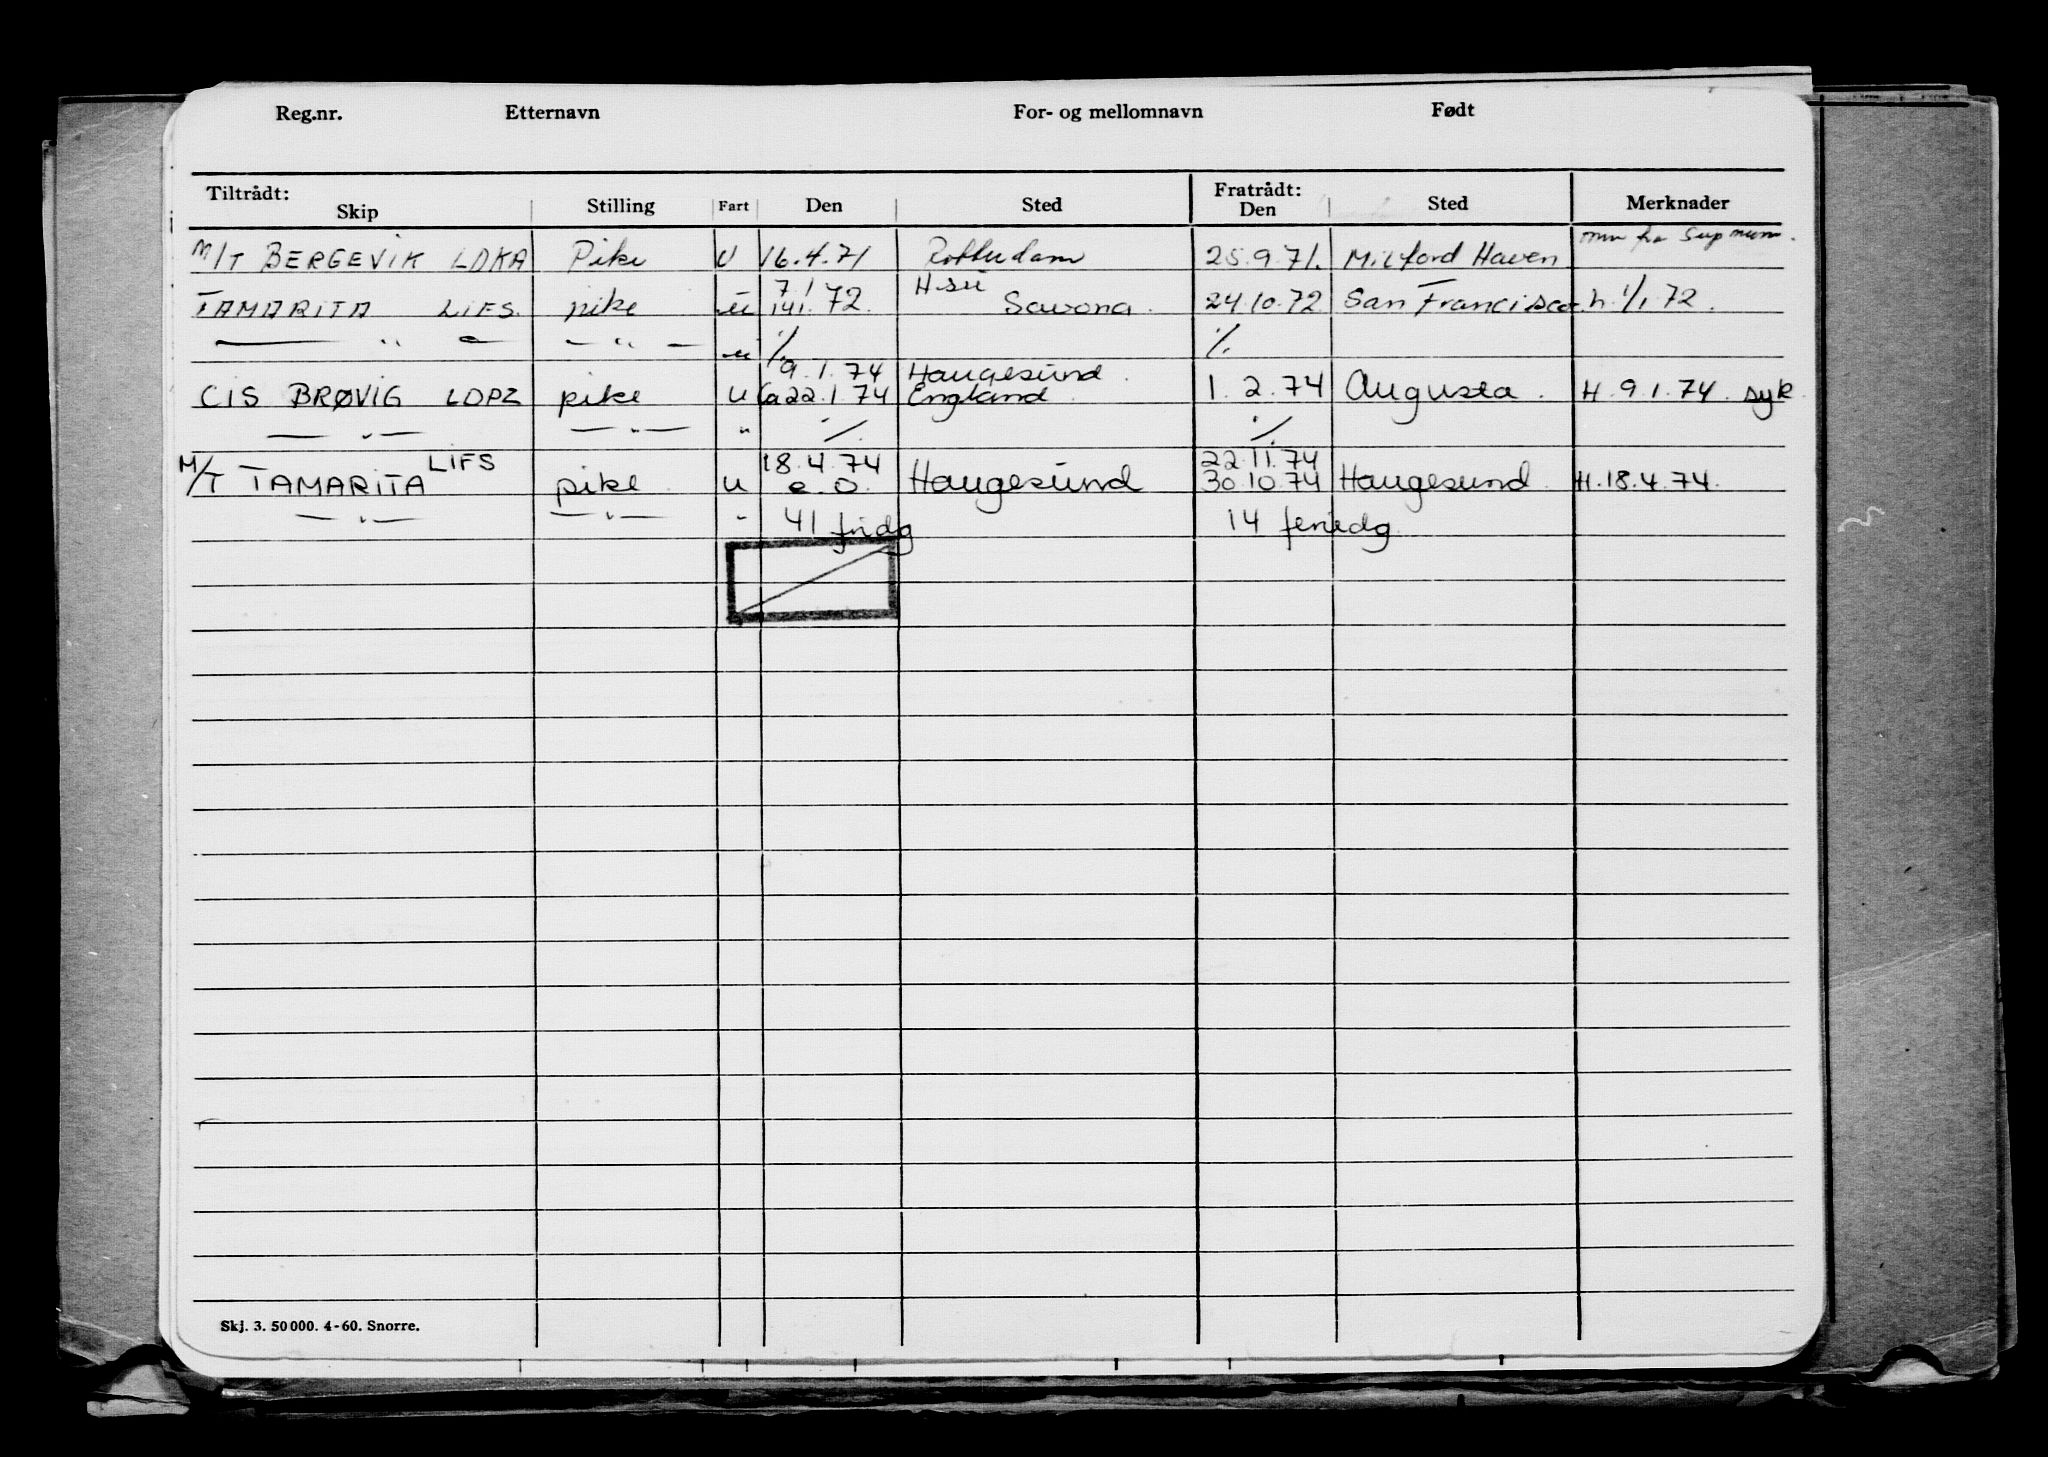 Reg.nr. Etternavn For- og mellomnavn Født
Tiltrådt: Skip Stilling Fart Den Sted Fratrådt: Den Sted Merknader
M/T BERGEVIK LDKA Pike U 16.4.71 Rotterdam 25.9.71. Milford Haven
7.1 H-su
TAMARITA LIFS. pike u 141.72. Savona. 24.10.72 San Francisco h. 1/1.72.
— " — — " — u ./. ./.
9.1.74 Haugesund.
CIS BRØVIG LDPZ pike u Ca 22.1.74 England. 1.2.74 Augusta. H. 9.1.74. syk.
— " — — " — " ./. ./.
LIFS 18.4.74 22.11.74
M/T TAMARITA pike u e.o. Haugesund 30.10.74 Haugesund. H. 18.4.74.
— " — — " — " 41 fridg 14 feriedg.
Skj. 3. 50 000. 4-60. Snorre.